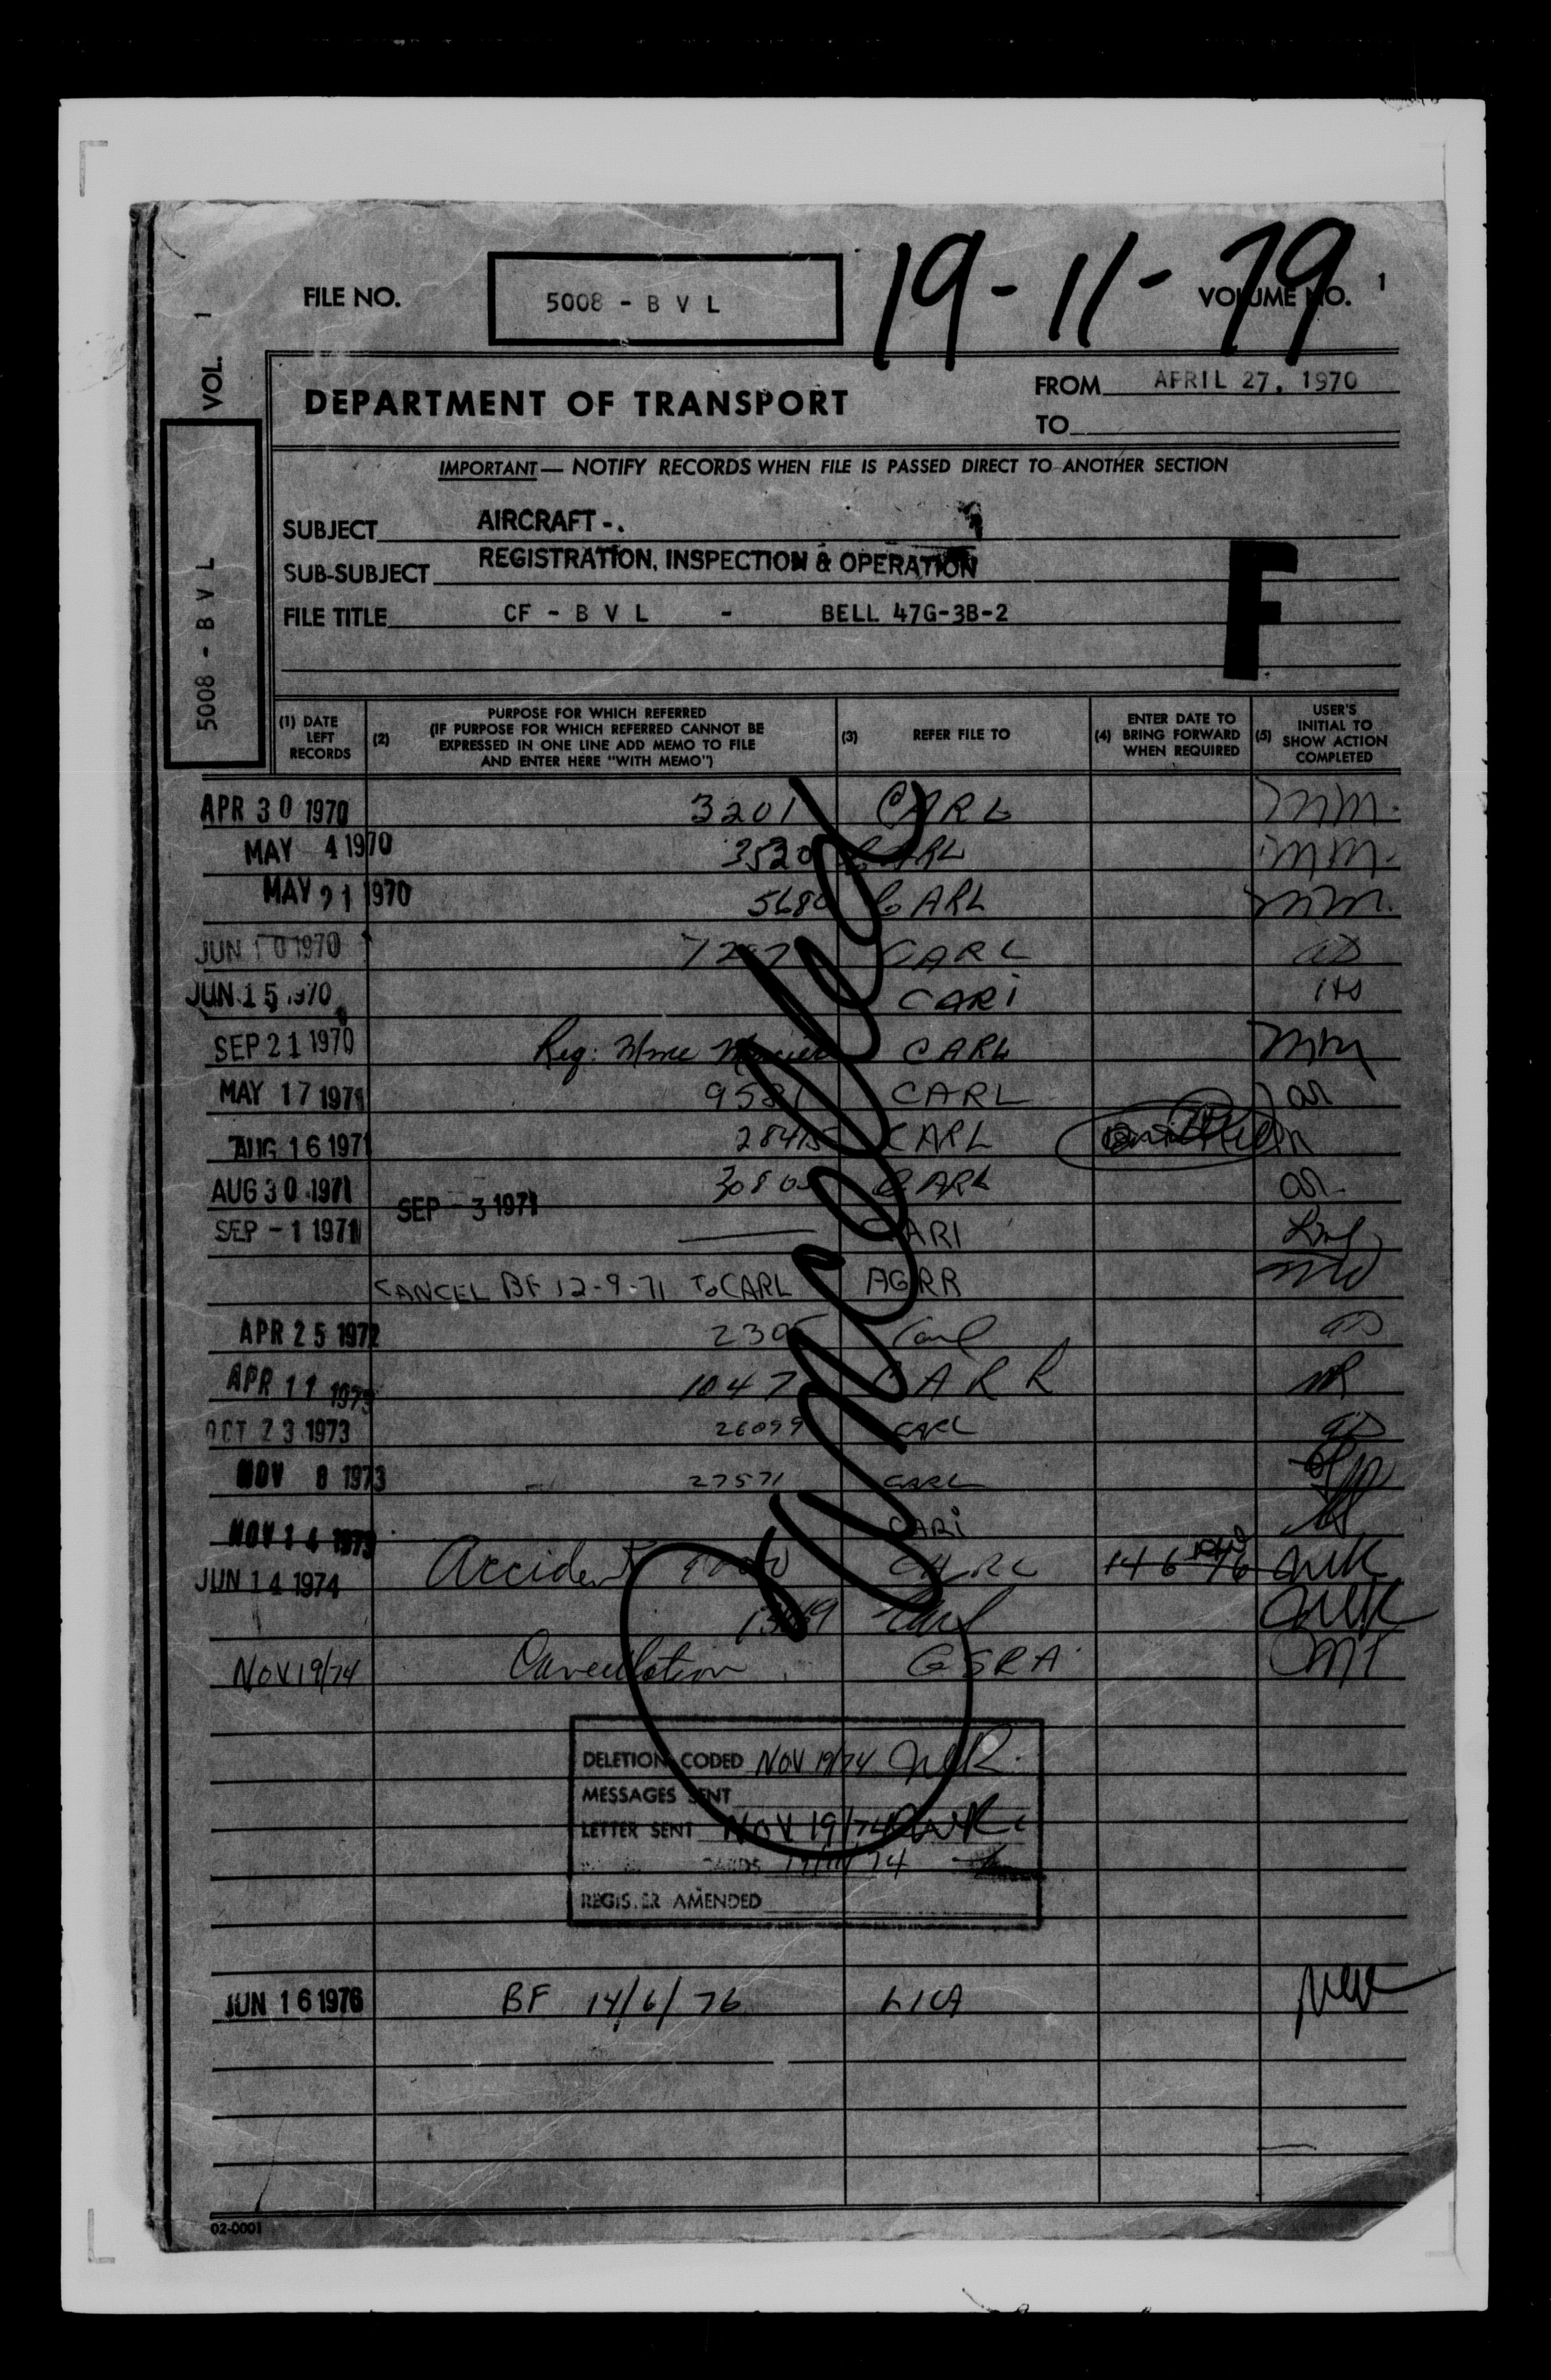 19-11-79
FILE NO. 5008 - B V L VOLUME NO. 1
VOL. 1
5008 - B V L
DEPARTMENT OF TRANSPORT
FROM APRIL 27, 1970
TO
IMPORTANT — NOTIFY RECORDS WHEN FILE IS PASSED DIRECT TO ANOTHER SECTION
SUBJECT AIRCRAFT -.
SUB-SUBJECT REGISTRATION, INSPECTION & OPERATION
FILE TITLE CF - B V L - BELL 47G-3B-2
F
(1) DATE LEFT RECORDS
(2) PURPOSE FOR WHICH REFERRED
(IF PURPOSE FOR WHICH REFERRED CANNOT BE
EXPRESSED IN ONE LINE ADD MEMO TO FILE
AND ENTER HERE "WITH MEMO")
(3) REFER FILE TO
(4) ENTER DATE TO BRING FORWARD WHEN REQUIRED
(5) USER'S INITIAL TO SHOW ACTION COMPLETED
APR 30 1970 3201 CARL MM.
MAY 4 1970 3520 CARL MM.
MAY 21 1970 5680 CARL MM.
JUN 10 1970 CARL
JUN 15 1970 CARI
SEP 21 1970 Req: CARL MM
MAY 17 1971 9581 CARL
AUG 16 1971 28415 CARL
AUG 30 1971 CARL
SEP - 3 1971
SEP - 1 1971 CARI
CANCEL BF 12-9-71 To CARL AGRR
APR 25 1972 2305 Carl
APR 11 1973 1047 CARR
OCT 23 1973 26099 CARL
NOV 8 1973 27571 CARL
NOV 14 1973 CARI
JUN 14 1974 Accident CARL 14 6 76
Carl
NOV 19/74 Cancellation GSRA
DELETION CODED NOV 19/74
MESSAGES SENT
LETTER SENT NOV 19/74
CARDS
REGISTER AMENDED
JUN 16 1976 BF 14/6/76
02-0001